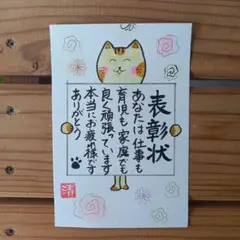 表彰状
あなたは仕事も
育児も家庭でも
良く頑張っています
本当にお疲れ様です
ありがとう